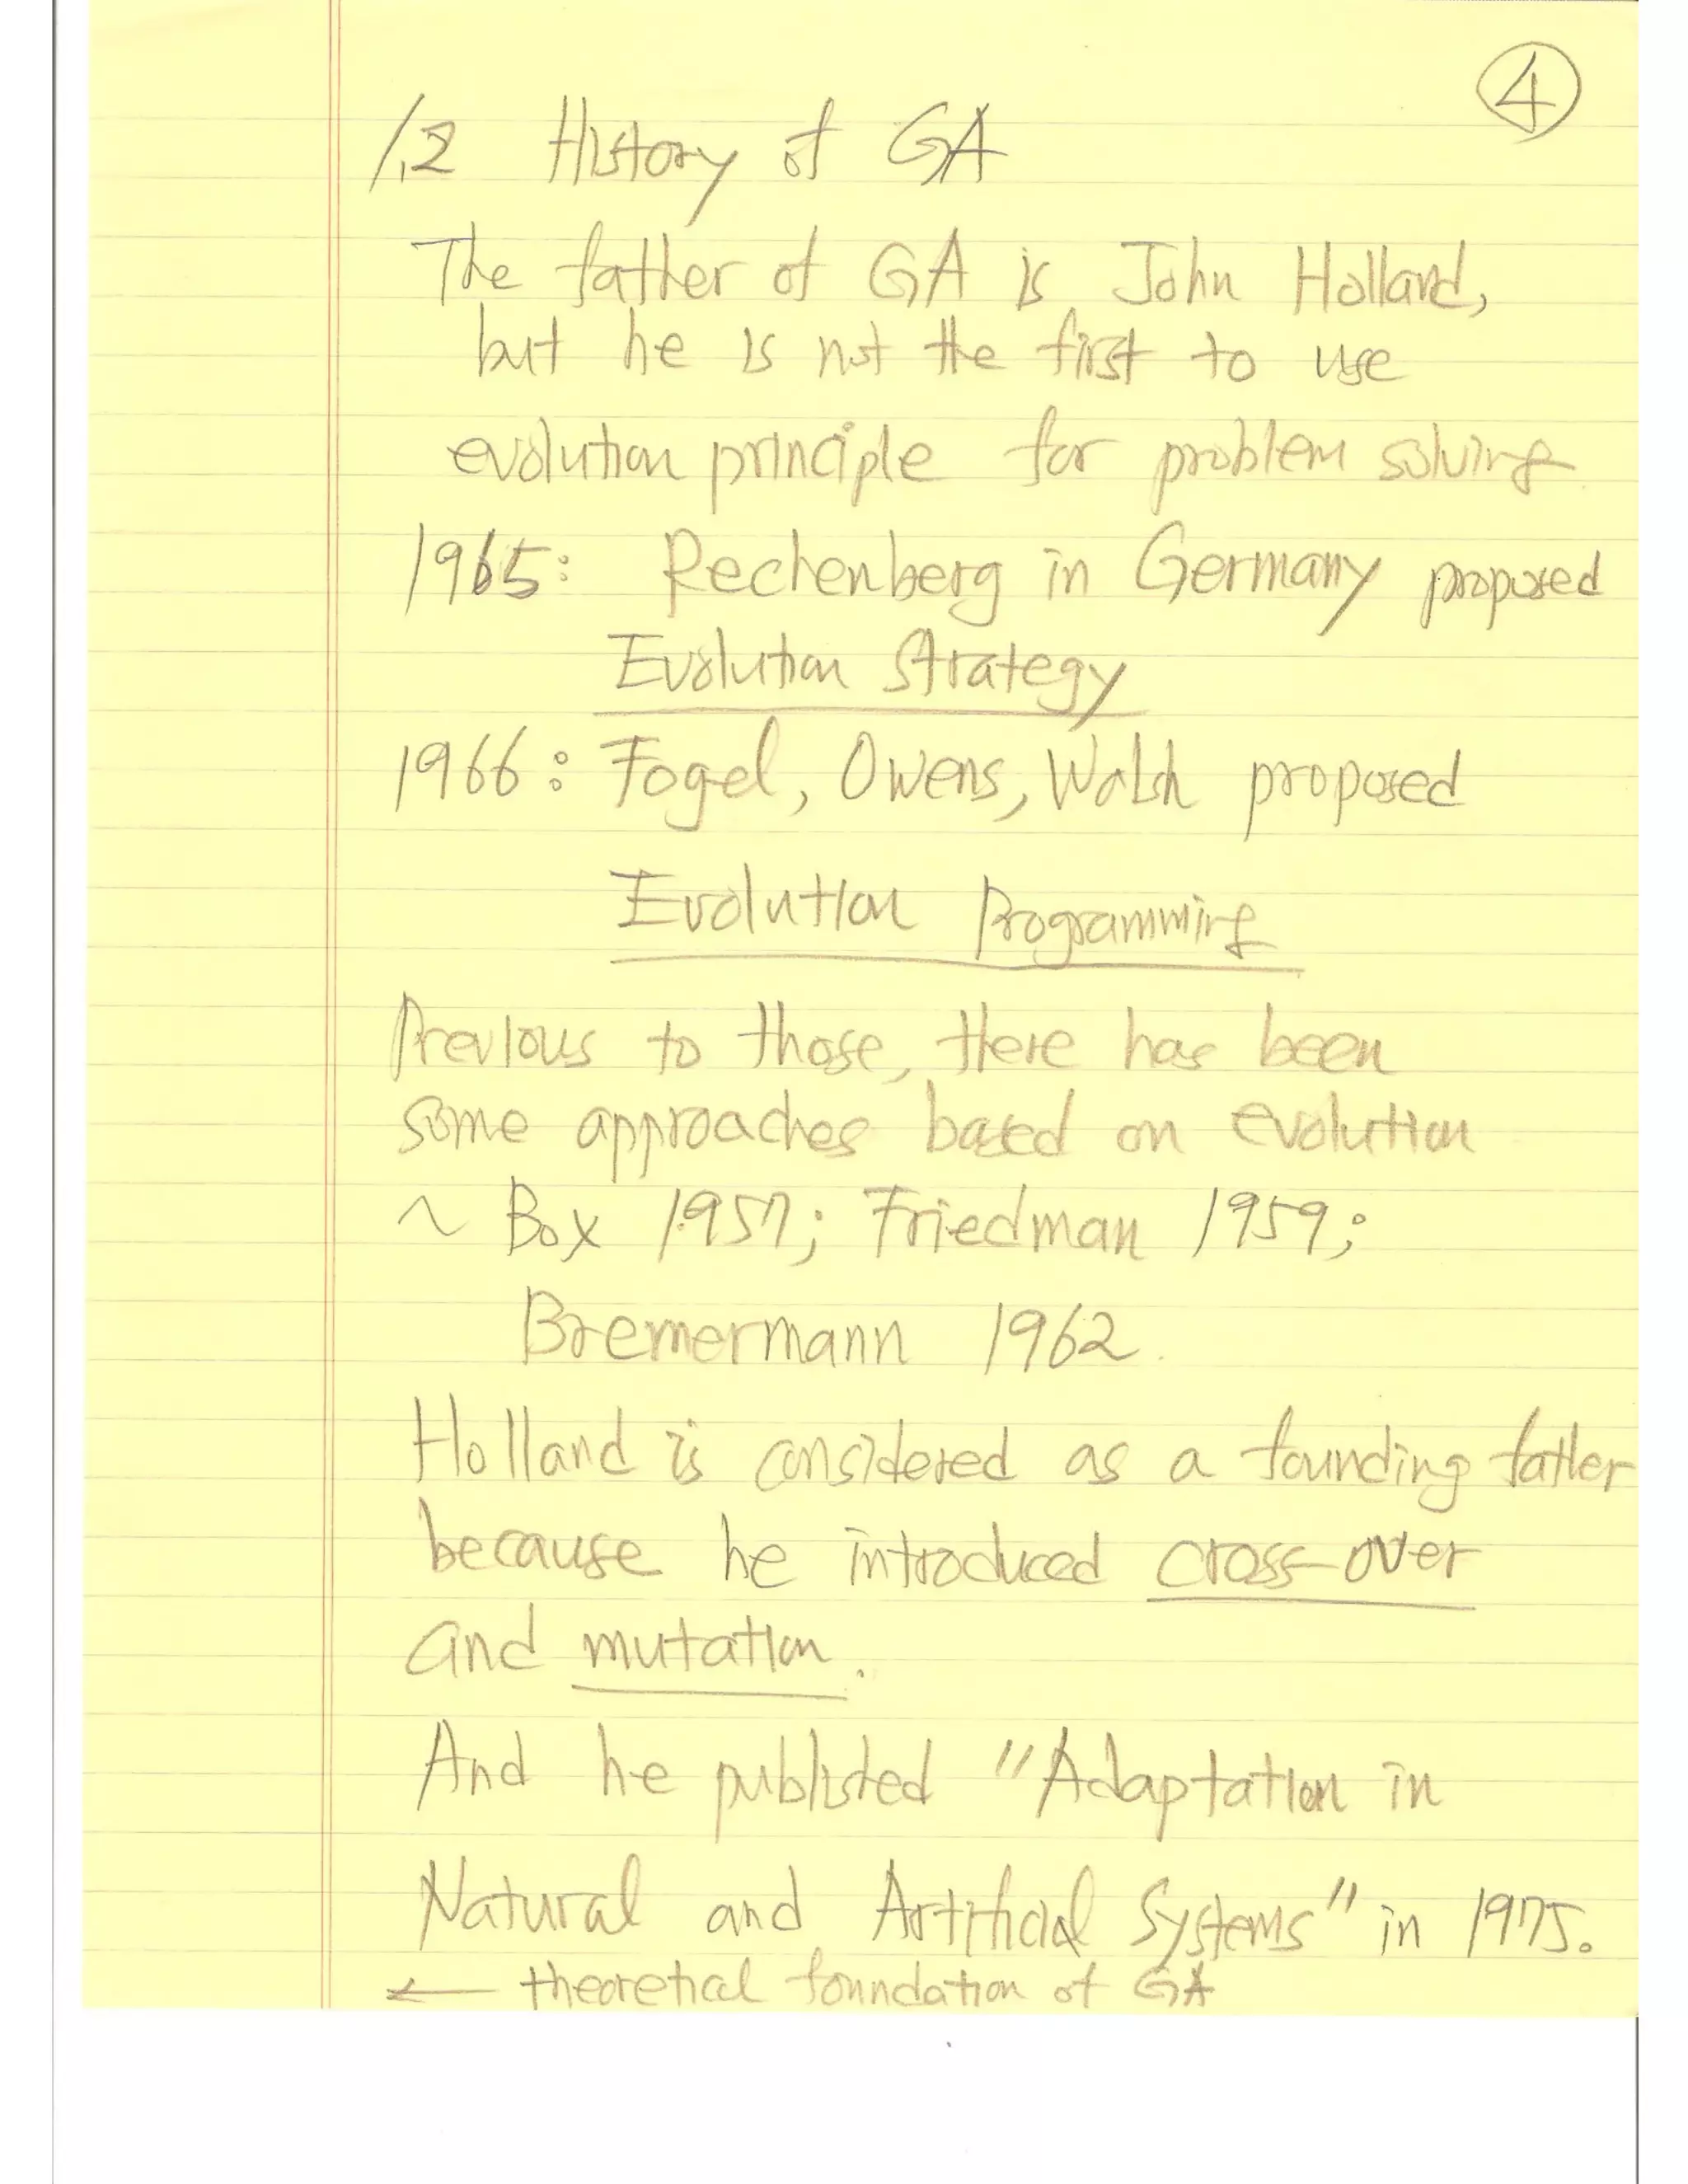 4
1.2 History of GA
The father of GA is John Holland,
but he is not the first to use
evolution principle for problem solving
1965: Rechenberg in Germany proposed
Evolution Strategy
1966: Fogel, Owens, Walsh proposed
Evolution Programming
Previous to those, there has been
some approaches based on evolution
~ Box 1957; Friedman 1959;
Bremermann 1962.
Holland is considered as a founding father
because he introduced cross-over
and mutation.
And he published "Adaptation in
Natural and Artificial Systems" in 1975.
← theoretical foundation of GA